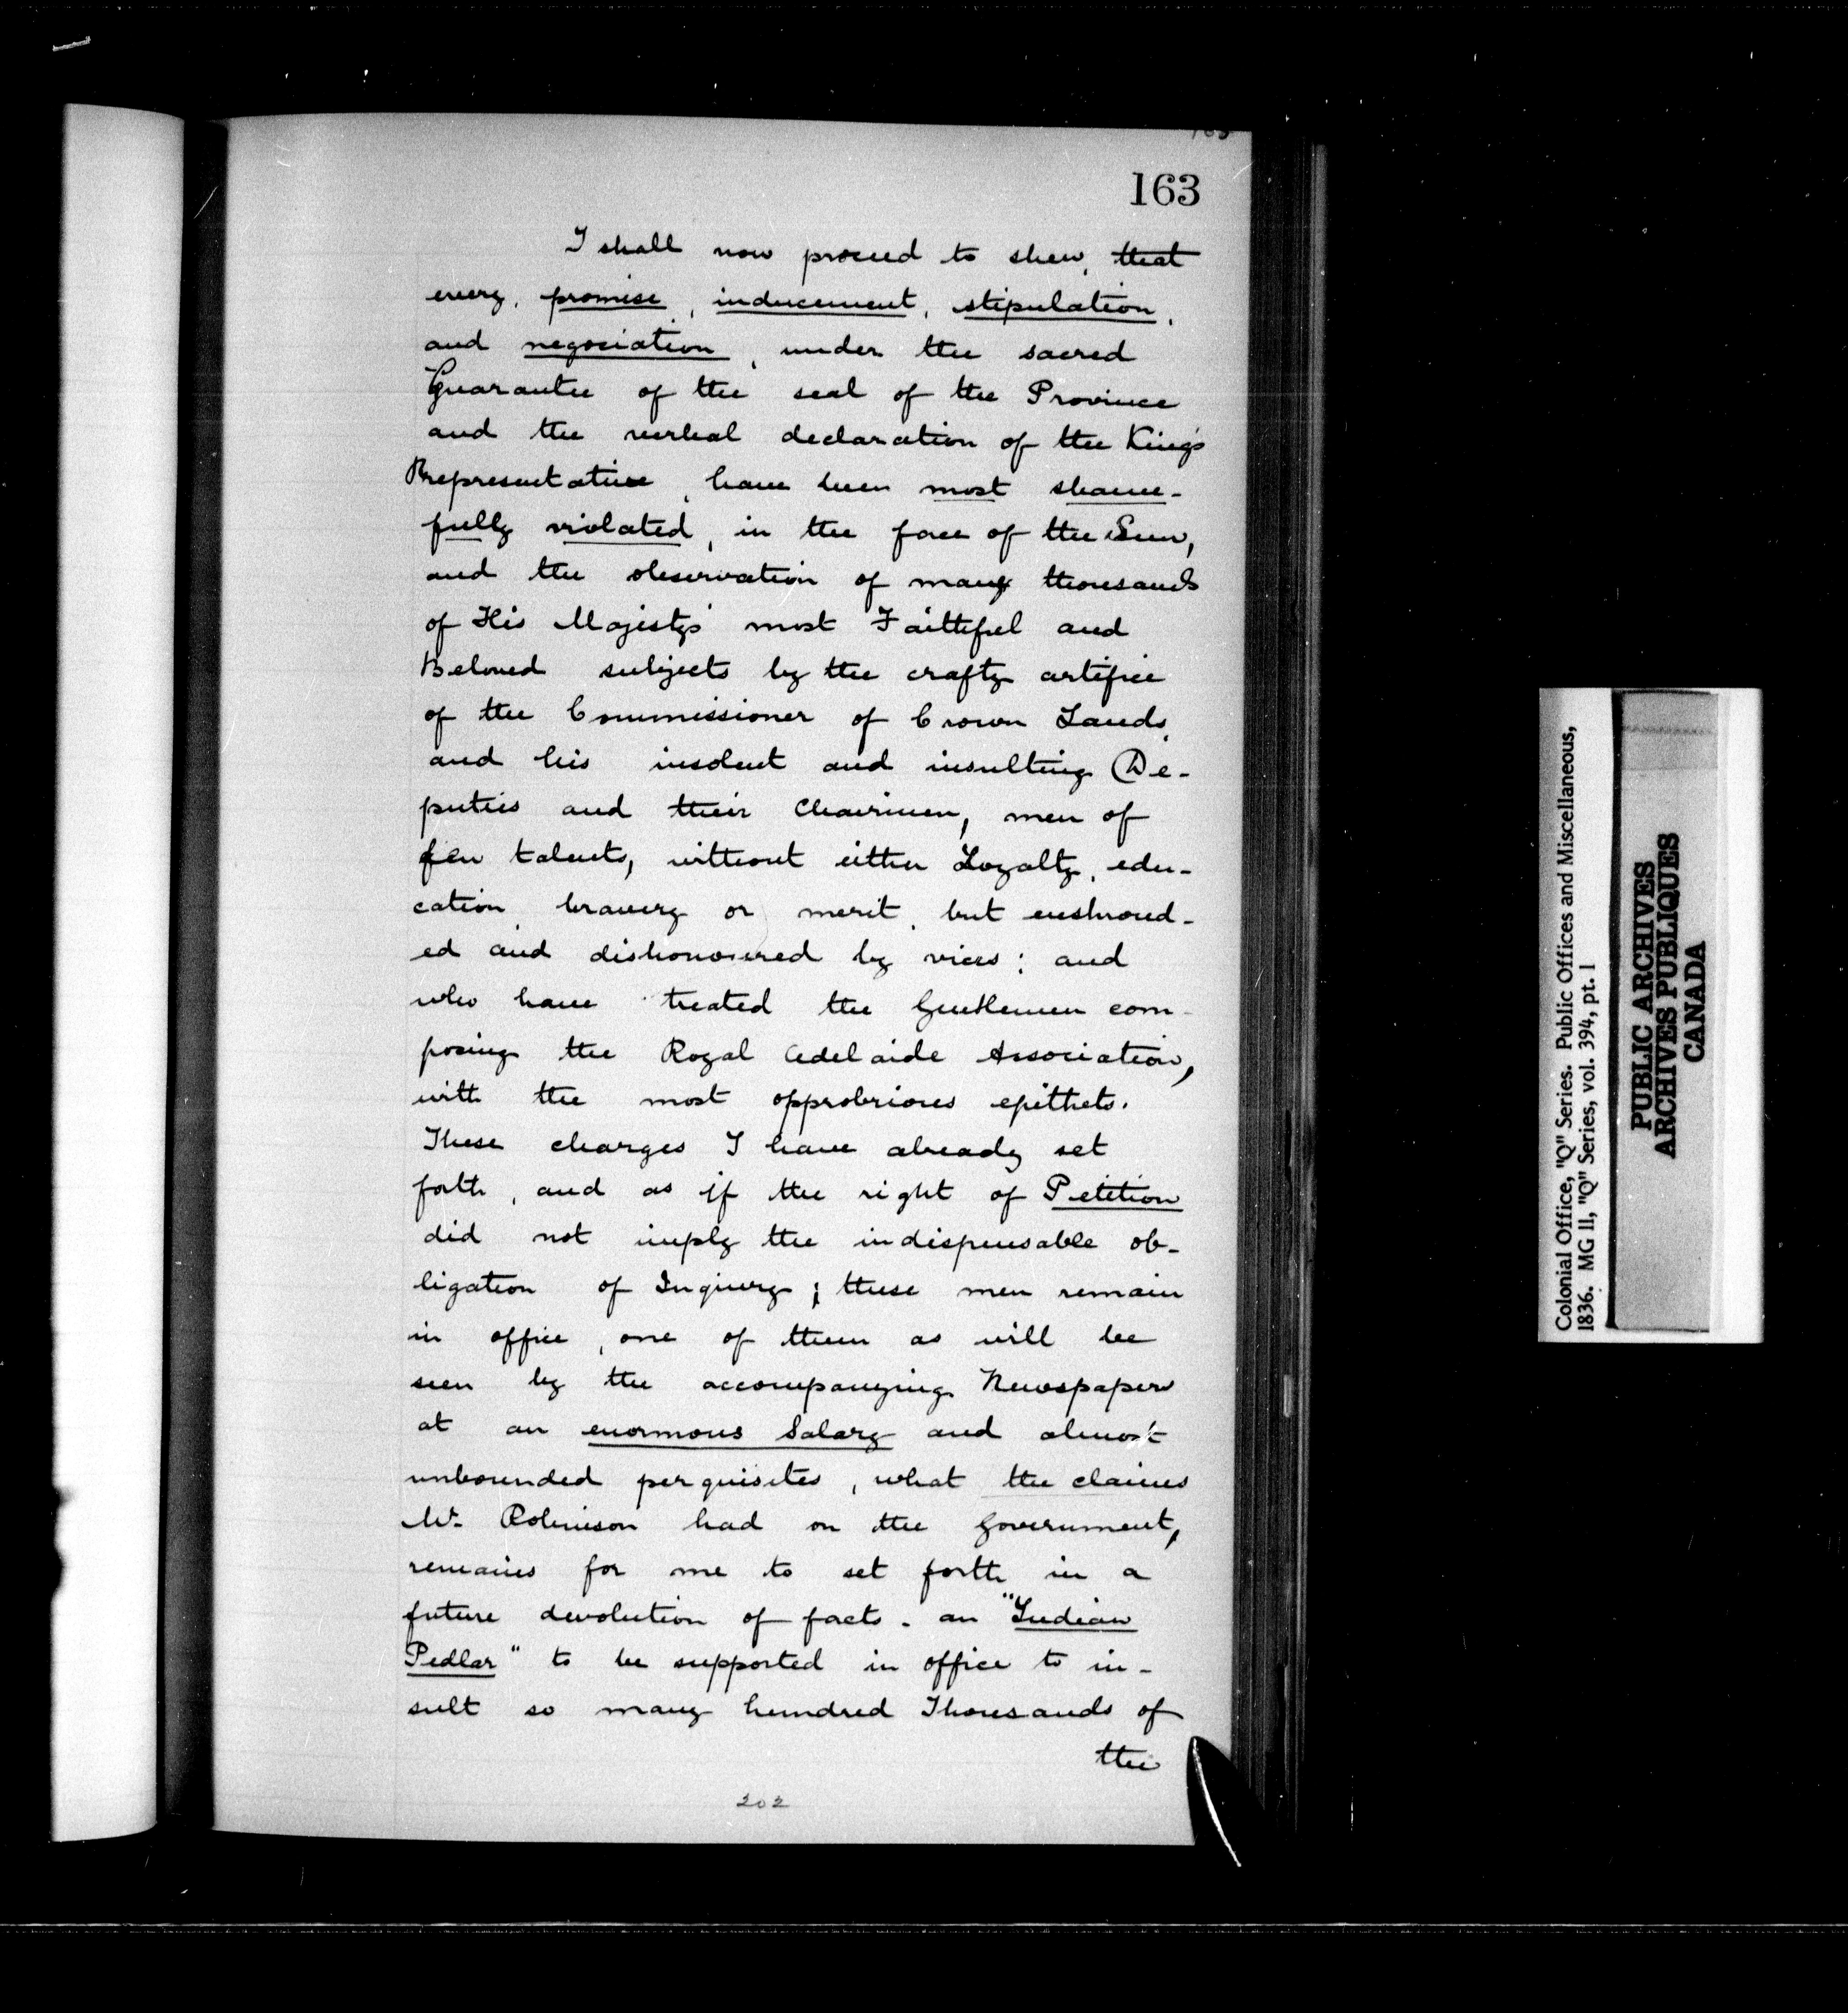 163
I shall now proceed to shew, that
every, promise, inducement, stipulation,
and negociation, under the sacred
Guarantee of the seal of the Province
and the verbal declaration of the King's
Representative, have been most shame-
fully violated, in the face of the Sun,
and the observation of many thousands
of His Majesty's most Faithful and
Beloved subjects by the crafty artifice
of the Commissioner of Crown Lands,
and his insolent and insulting De-
puties and their Chairmen, men of
few talents, without either Loyalty, edu-
cation bravery or merit, but enshroud-
ed and dishonoured by vices: and
who have treated the Gentlemen com-
posing the Royal Adelaide Association,
with the most opprobrious epithets.
These charges I have already set
forth, and as if the right of Petition
did not imply the indispensable ob-
ligation of Inquiry; these men remain
in office, one of them as will be
seen by the accompanying Newspapers
at an enormous Salary and almost
unbounded perquisites, what the claims
Mr. Robinson had on the Government,
remains for me to set forth in a
future devolution of facts. an "Indian
Pedlar" to be supported in office to in-
sult so many hundred Thousands of
the
202
Colonial Office, "Q" Series. Public Offices and Miscellaneous,
1836. MG 11, "Q" Series, vol. 394, pt. 1
PUBLIC ARCHIVES
ARCHIVES PUBLIQUES
CANADA